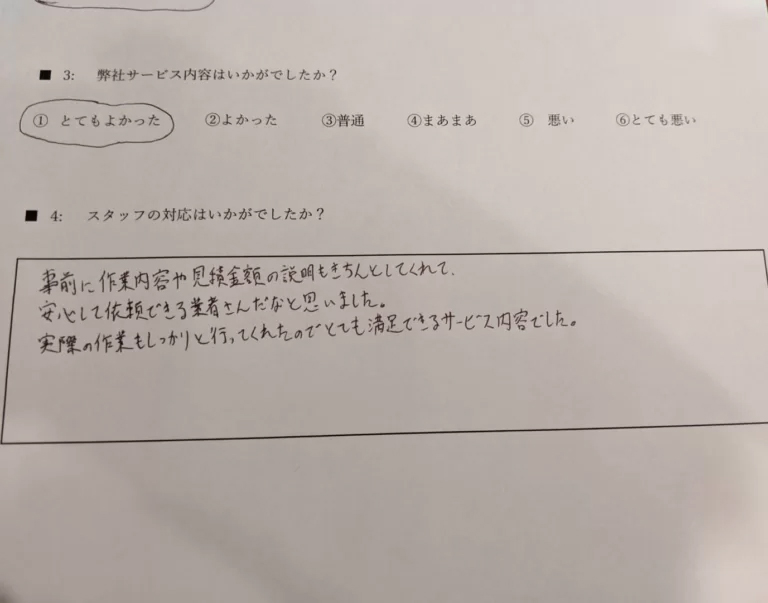 ■ 3: 弊社サービス内容はいかがでしたか？
① とてもよかった ②よかった ③普通 ④まあまあ ⑤ 悪い ⑥とても悪い
■ 4: スタッフの対応はいかがでしたか？
事前に作業内容や見積金額の説明もきちんとしてくれて、
安心して依頼できる業者さんだなと思いました。
実際の作業もしっかりと行ってくれたのでとても満足できるサービス内容でした。